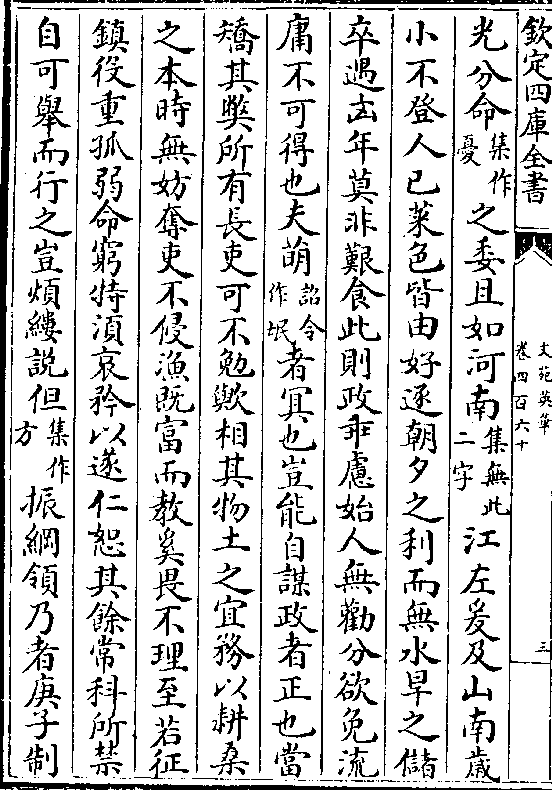 欽定四庫全書
文苑英華
卷四百六十
三
光分命集作憂之委且如河南集無此二字江左爰及山南歲
小不登人已菜色皆由好逐朝夕之利而無水旱之儲
卒遇凶年莫非艱食此則政乖慮始人無勸分欲免流
庸不可得也夫萌詔令作氓者冥也豈能自謀政者正也當
矯其弊所有長吏可不勉歟相其物土之宜務以耕桑
之本時無妨奪吏不侵漁既富而教奚畏不理至若征
鎮役重孤弱命窮特湏哀矜以遂仁恕其餘常科所禁
自可舉而行之豈煩縷說但集作方振綱領乃者庚子制